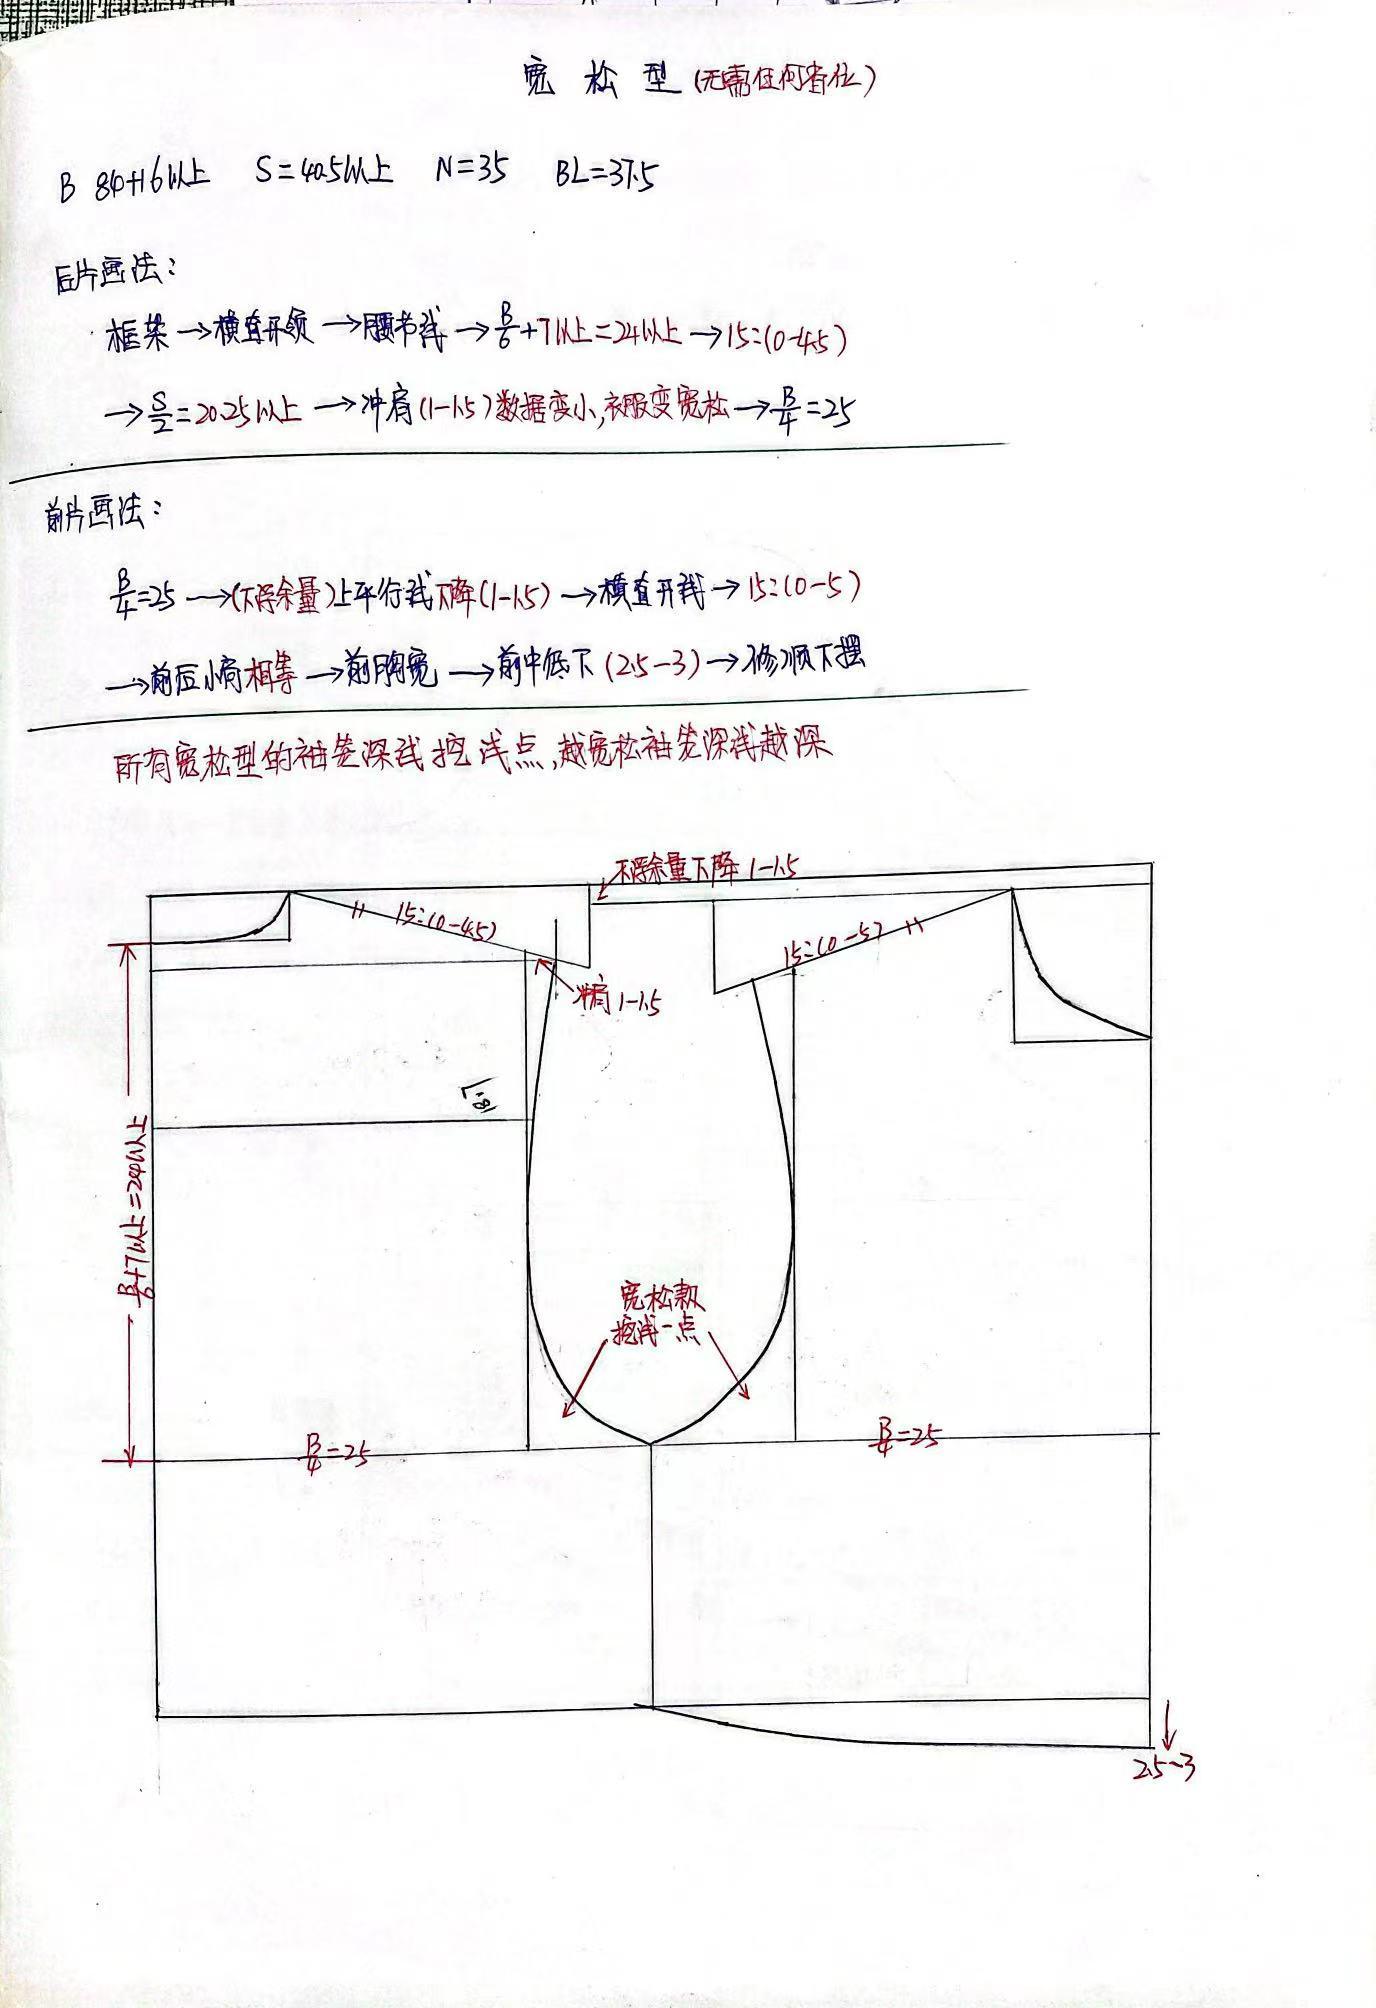 宽松型(无需任何省位)
B 84+16以上 S=40.5以上 N=35 BL=37.5
后片画法：
框架→横直开领→腰节线→B/6+7以上=24以上→15:(0-4.5)
→S/2=20.25以上→冲肩(1-1.5)数据变小,衣服变宽松→B/4=25
前片画法：
B/4=25→(不浮余量)上平行线下降(1-1.5)→横直开线→15:(0-5)
→前后小肩相等→前胸宽→前中低下(2.5-3)→修顺下摆
所有宽松型的袖笼深线挖浅点,越宽松袖笼深线越深
不浮余量下降1-1.5
15:(0-4.5)
15:(0-5)
冲肩1-1.5
B/6+7以上=24以上
宽松款
挖浅一点
B/4=25
B/4=25
2.5-3